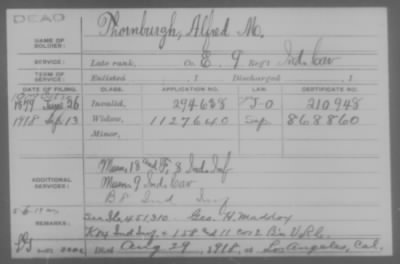 DEAD
NAME OF SOLDIER: Thornburgh, Alfred M.
SERVICE: Late rank, Co. E, 9 Reg't Ind. Cav
TERM OF SERVICE: Enlisted , 1 Discharged , 1
DATE OF FILING. CLASS. APPLICATION NO. LAW. CERTIFICATE NO.
1879 June 26 Invalid, 294638 J-O 210948
1918 Sep. 13 Widow, 1127640 868860
Minor,
ADDITIONAL SERVICES:
18 & F, 8 Ind. Inf
9 Ind. Cav
B 8 Ind Inf
REMARKS: 451,310 Geo. H. Maddox
K 84 Ind. Inf. + 158 Co 2 Bn V.R.C.
Died Aug 29, 1918, at Los Angeles, Cal.